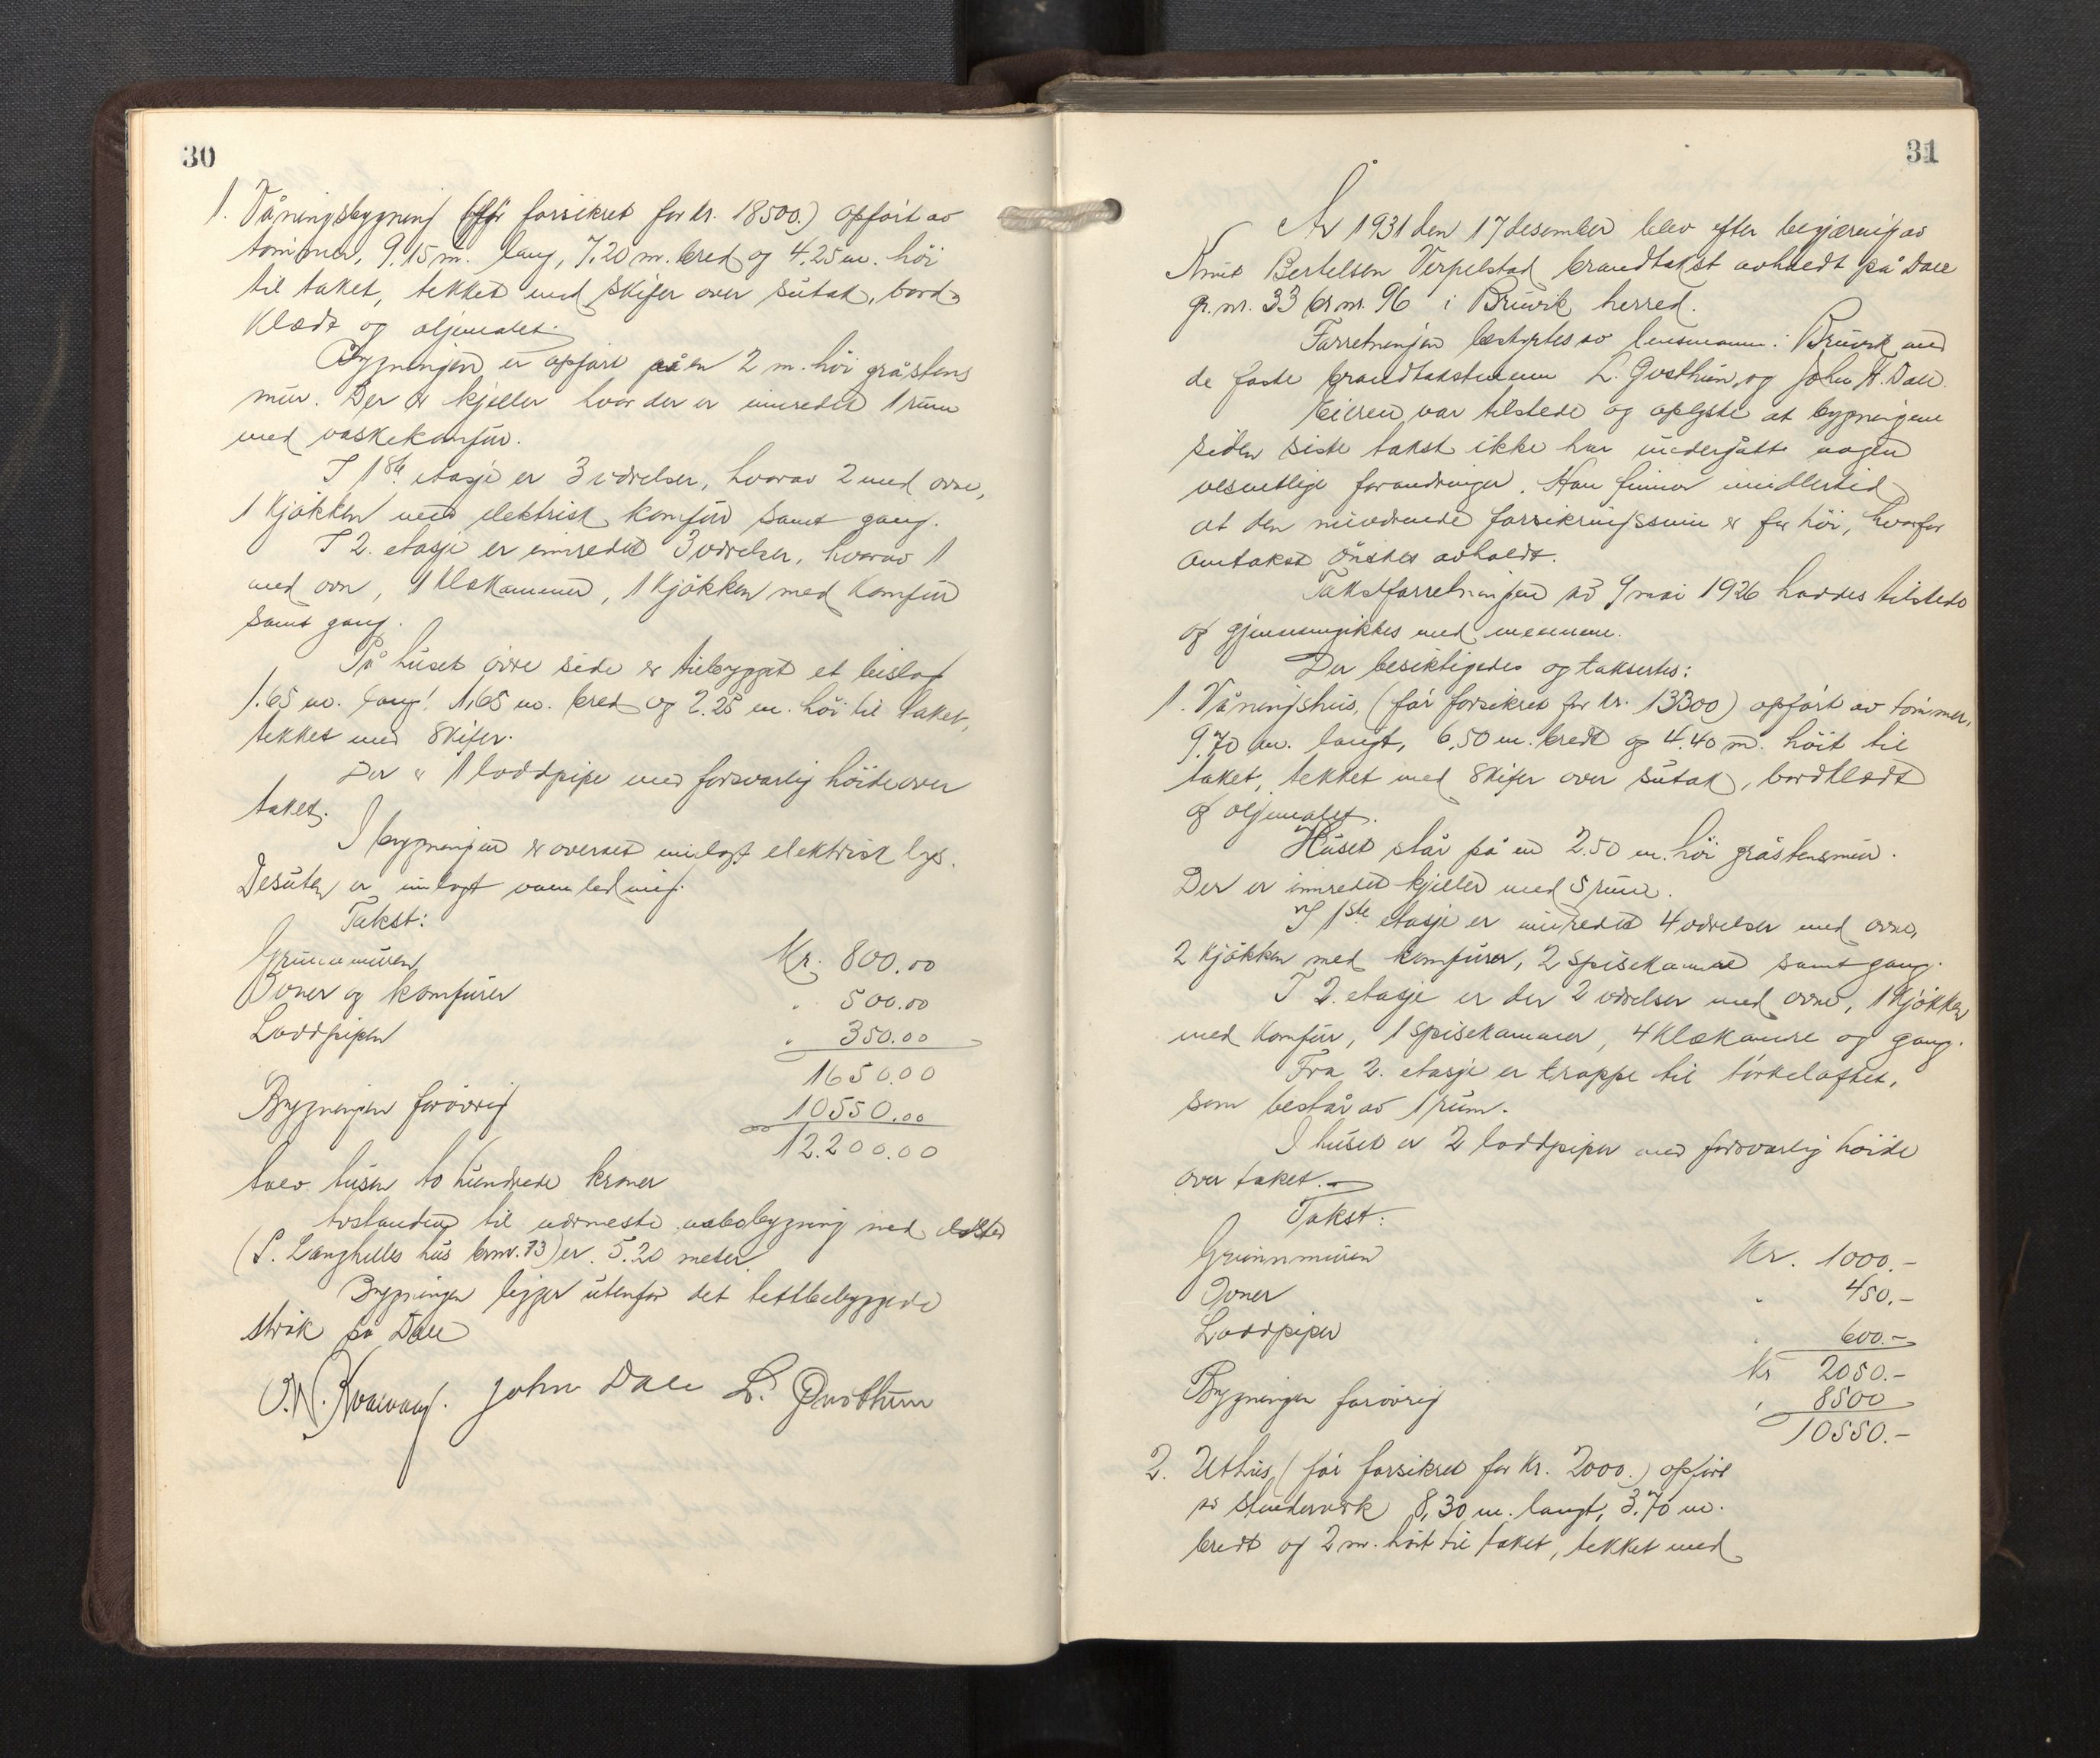 30
1. Våningsbygning (før forsikret for kr. 18500.) opført av
tømmer, 9.15 m. lang, 7,20 m. bred og 4.25 m. høi
til taket, tekket med skifer over sutak, bord-
klædt og oljemalet.
Bygningen er opført på en 2 m. høi gråstens
mur. Der er kjeller hvor der er innredet 1 rum
med vaskekomfur.
I 1ste etasje er 3 værelser, hvorav 2 med ovne,
1 kjøkken med elektrisk komfur samt gang.
I 2. etasje er innredet 3 værelser, hvorav 1
med ovn, 1 klækammer, 1 kjøkken med komfur
samt gang.
På huset øvre side er tilbygget et bislag
1.65 m. lang, 1,65 m. bred og 2.25 m. høi til taket,
tekket med skifer.
Der er 1 loddpipe med forsvarlig høide over
taket.
I bygningen er overalt innlagt elektrisk lys.
Desuten er innlagt vannledning.
Takst:
Grunnmuren Kr. 800.00
Ovner og komfurer " 500.00
Loddpipen " 350.00
1650.00
Bygningen forøvrig 10550.00
12.200.00
tolv tusen to hundrede kroner
Avstanden til nærmeste nabobygning med ildsted
(S. Langhelles hus brnr. 73) er 5.20 meter.
Bygningen ligger utenfor det tettbebyggede
strøk på Dale
O.N. John Dale L. Gusthun
31
År 1931 den 17 desember blev efter begjæring av
Knut Bertelsen Verpelstad brandtakst avholdt på Dale
gr. nr. 33 br nr. 96 i Bruvik herred.
Forretningen bestyrtes av lensmann i Bruvik med
de faste brandtakstmenn L. Gusthun og John H. Dale.
Eieren var tilstede og oplyste at bygningene
siden siste takst ikke har undergått nogen
vesentlige forandringer. Han finner imidlertid
at den nuværende forsikringssum er for høi, hvorfor
omtakst ønskes avholdt.
Takstforretningen av 9 mai 1926 haddes tilstede
og gjennemgikkes med mennene.
Der besiktigedes og taksertes:
1. Våningshus, (før forsikret for kr. 13300) opført av tømmer,
9.70 m. langt, 6,50 m. bredt og 4.40 m. høit til
taket, tekket med skifer over sutak, bordklædt
og oljemalet.
Huset står på en 2.50 m. høi gråstensmur.
Der er innredet kjeller med 5 rum.
I 1ste etasje er innredet 4 værelser med ovne,
2 kjøkken med komfurer, 2 spisekammer samt gang.
I 2. etasje er der 2 værelser med ovne, 1 kjøkken
med komfur, 1 spisekammer, 4 klækamre og gang.
Fra 2. etasje er trappe til tørkeloftet,
som består av 1 rum.
I huset er 2 loddpiper med forsvarlig høide
over taket.
Takst:
Grunnmuren Kr. 1000.-
Ovner " 450.-
Loddpiper " 600.-
Kr 2050.-
Bygningen forøvrig " 8500
10550.-
2. Uthus, (før forsikret for kr. 2000.) opført
av stenderverk 8,30 m. langt, 3.70 m.
bredt og 2 m. høit til taket, tekket med